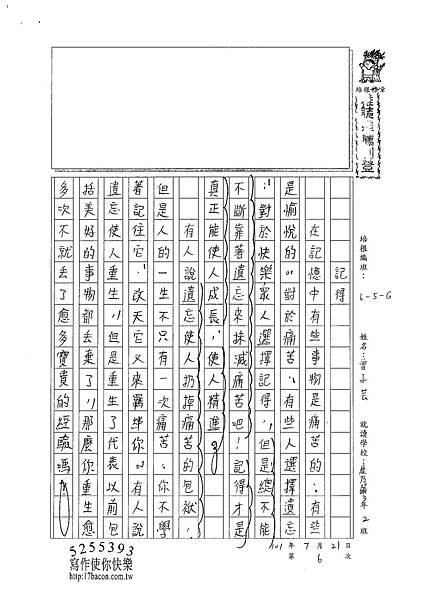 培根文章
培根編班：6-5-G 姓名：曾子芸 就讀學校：
記得
在記憶中有些事物是痛苦的；有些
是愉悅的。對於痛苦，有些人選擇遺忘
；對於快樂眾人選擇記得，但是總不能
不斷靠著遺忘來抹滅痛苦吧！記得才是
真正能使人成長，使人精進。
有人說遺忘使人扔掉痛苦的包袱，
但是人的一生不只有一次痛苦，你不學
著記住它，改天它又來羈絆你。有人說
遺忘使人重生，但是重生了代表以前包
括美好的事物都丟棄了，那麼你重生愈
多次不就丟了愈多寶貴的經驗嗎？
101年7月21日
第6次
5255393
寫作使你快樂
http://17bacon.com.tw